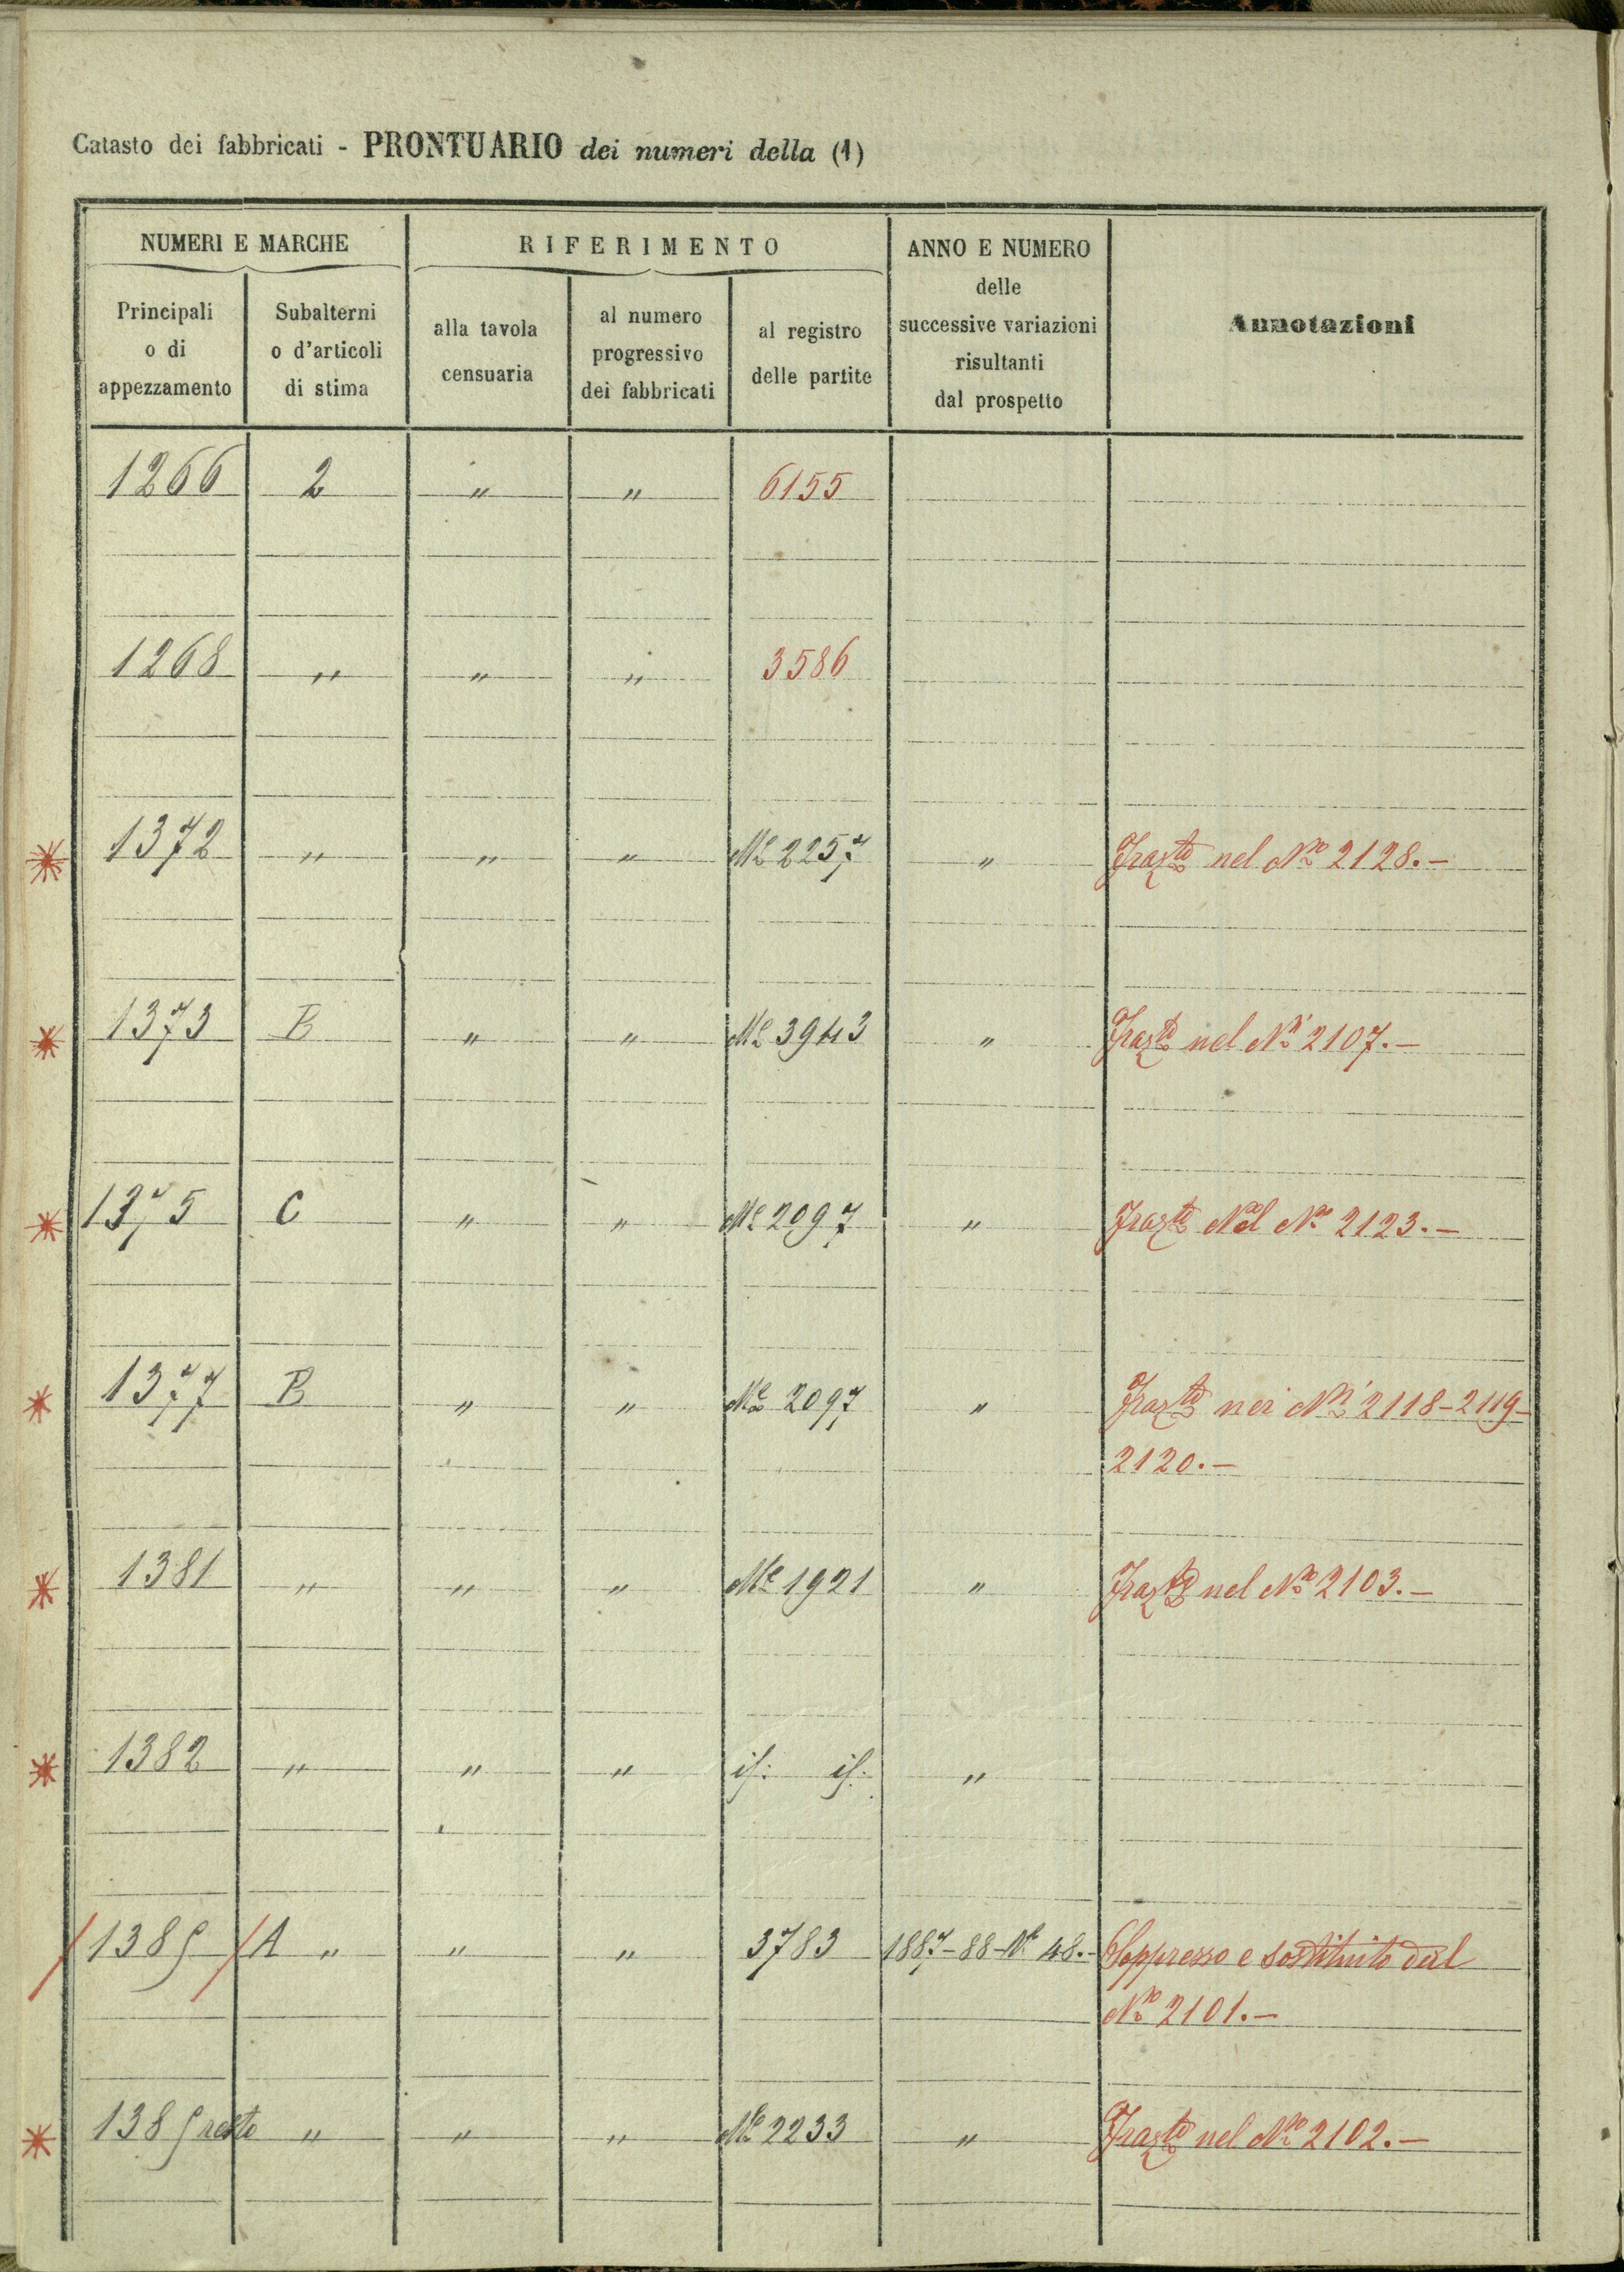 Catasto dei fabbricati - PRONTUARIO dei numeri della (1)
NUMERI E MARCHE
RIFERIMENTO
ANNO E NUMERO
delle
successive variazioni
risultanti
dal prospetto
Annotazioni
Principali
o di
appezzamento
Subalterni
o d'articoli
di stima
alla tavola
censuaria
al numero
progressivo
dei fabbricati
al registro
delle partite
1266 2 " " 6155
1268 " " " 3586
1372 " " " 2257 " nel No 2128.-
1373 B " " 3943 " nel 2107.-
1375 C " " 2097 " No 2123.-
1377 B " " 2097 " nei Ni 2118-2119-
2120.-
1381 " " " 1921 " nel No 2103.-
1382 " " " "
138 A " " " 3783 1887-88-N° 48.- Soppresso e sostituito dal
No 2101.-
138 resto " " " 2233 " nel No 2102.-